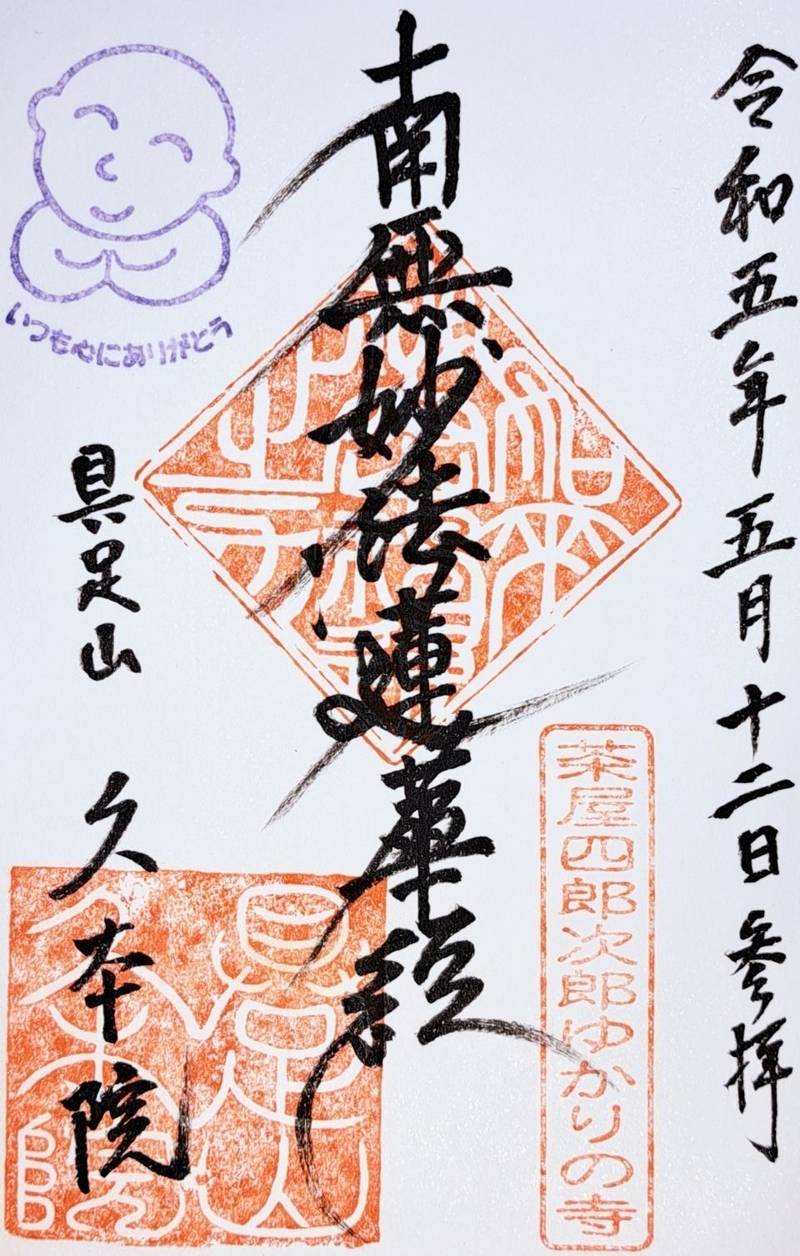 令和五年五月十二日参拝
茶屋四郎次郎ゆかりの寺
南無妙法蓮華経
いつも心にありがとう
具足山
久本院
具足山
久本院